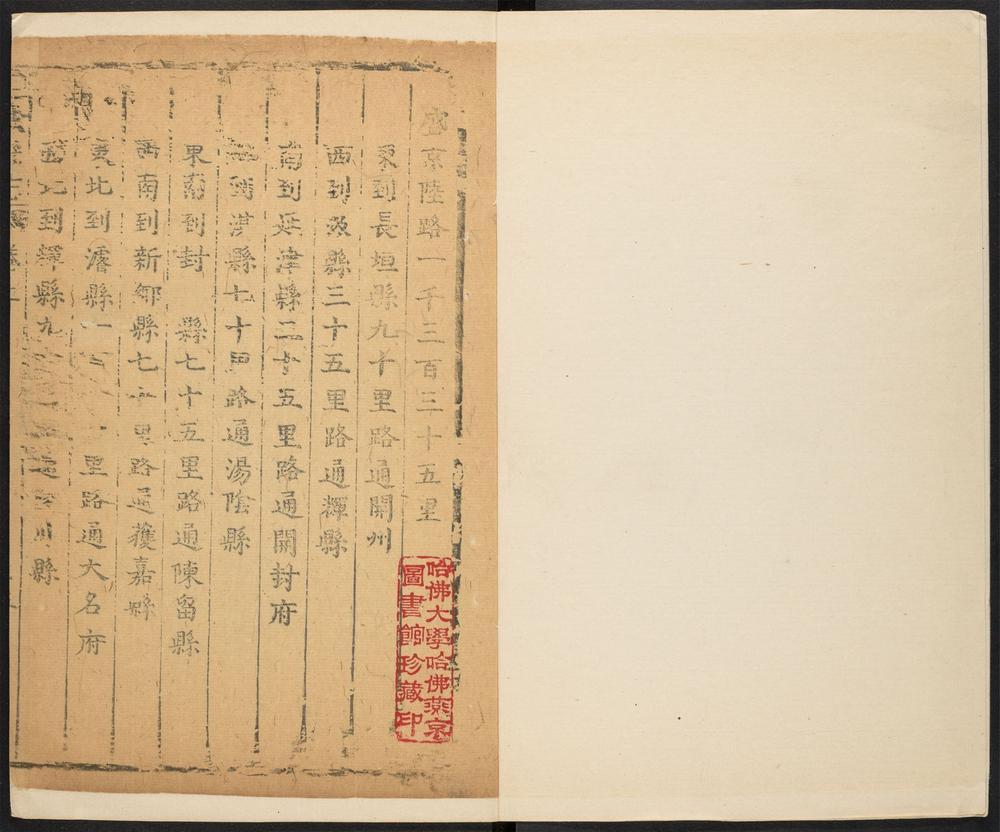 京陸路一千三百三十五里
東到長垣縣九十里路通開州
西到汲縣三十五里路通輝縣
南到延津縣二十五里路通開封府
到淇縣七十里路通湯陰縣
東南到封 縣七十五里路通陳留縣
西南到新鄉縣七十里路通獲嘉縣
東北到濬縣一 里路通大名府
西北到輝縣九 縣
哈佛大學哈佛燕京
圖書館珍藏印